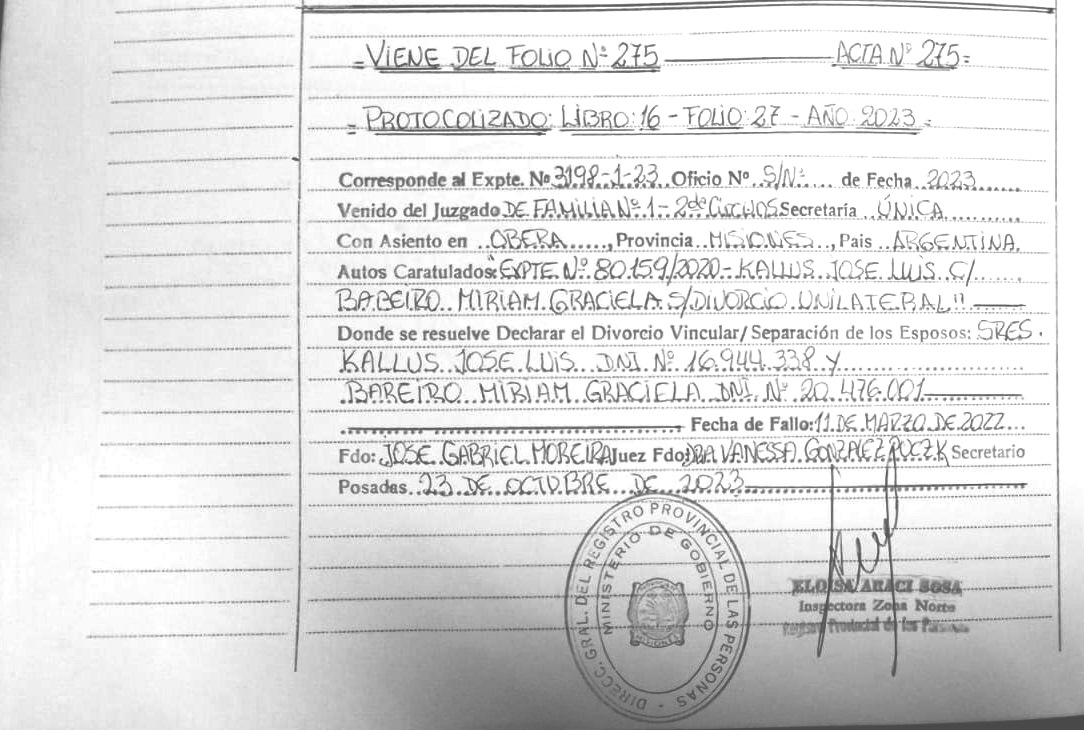 =VIENE DEL FOLIO Nº 275 ACTA Nº 275=
= PROTOCOLIZADO: LIBRO: 16 - FOLIO: 27 - AÑO: 2023 =
Corresponde al Expte. Nº 3198-1-23 Oficio Nº S/Nº de Fecha 2023
Venido del Juzgado DE FAMILIA Nº 1 - 2da Secretaría ÚNICA
Con Asiento en OBERA, Provincia MISIONES, Pais ARGENTINA.
Autos Caratulados: "EXPTE. Nº 80.159/2020 - KALLUS JOSE LUIS C/
BAREIRO MIRIAM GRACIELA S/DIVORCIO UNILATERAL"
Donde se resuelve Declarar el Divorcio Vincular/Separación de los Esposos: SRES.
KALLUS JOSE LUIS DNI. Nº 16.944.338 Y
BAREIRO MIRIAM GRACIELA DNI. Nº 20.476.001
Fecha de Fallo: 11 DE MARZO DE 2022
Fdo: JOSE GABRIEL MOREIRA Juez Fdo: DRA VANESSA GONZALEZ Secretario
Posadas 23 DE OCTUBRE DE 2023
DIRECC. GRAL. DEL REGISTRO PROVINCIAL DE LAS PERSONAS
MINISTERIO DE GOBIERNO
MISIONES
ELOISA ARACI SOSA
Inspectora Zona Norte
Registro Provincial de las Personas